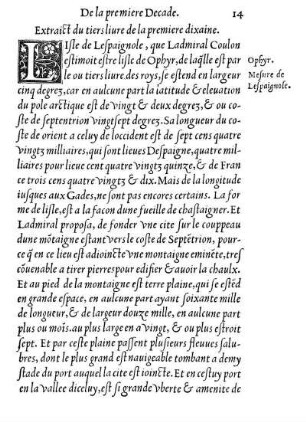 De la premiere Decade. 14
Extraict du tiers liure de la premiere dixaine.
LIsle de Lespaignole, que Ladmiral Coulon
estimoit estre lisle de Ophyr, de laq̃lle est par
le ou tiers liure des roys, se estend en largeur
cinq degrez, car en aulcune part la latitude & eleuation
du pole arctique est de vingt & deux degrez, & ou co-
ste de septentrion vingtsept degrez. Sa longueur du co-
ste de orient a celuy de loccident est de sept cens quatre
vingtz milliaires, qui sont lieues Despaigne, quatre mil-
liaires pour lieue cent quatre vingtz quinze, & de Fran
ce trois cens quatre vingtz & dix. Mais de la longitude
iusques aux Gades, ne sont pas encores certains. La for
me de lisle, est a la facon dune fueille de chastaigner. Et
Ladmiral proposa, de fonder vne cite sur le couppeau
dune mõtaigne estant vers le coste de Septẽtrion, pour-
ce q̃ en ce lieu est adioincte vne montaigne eminẽte, tres
cõuenable a tirer pierres pour edifier & auoir la chaulx.
Et au pied de la montaigne est terre plaine, qui se estẽd
en grande espace, en aulcune part ayant soixante mille
de longueur, & de largeur douze mille, en aulcune part
plus ou mois. au plus large en a vingt, & ou plus estroit
sept. Et par ceste plaine passent plusieurs fleuues salu-
bres, dont le plus grand est nauigeable tombant a demy
stade du port auquel la cite est ioincte. Et en cestuy port
en la vallee diceluy, est si grande vberte & amenite de
Ophyr.
Mesure de
Lespaignole.